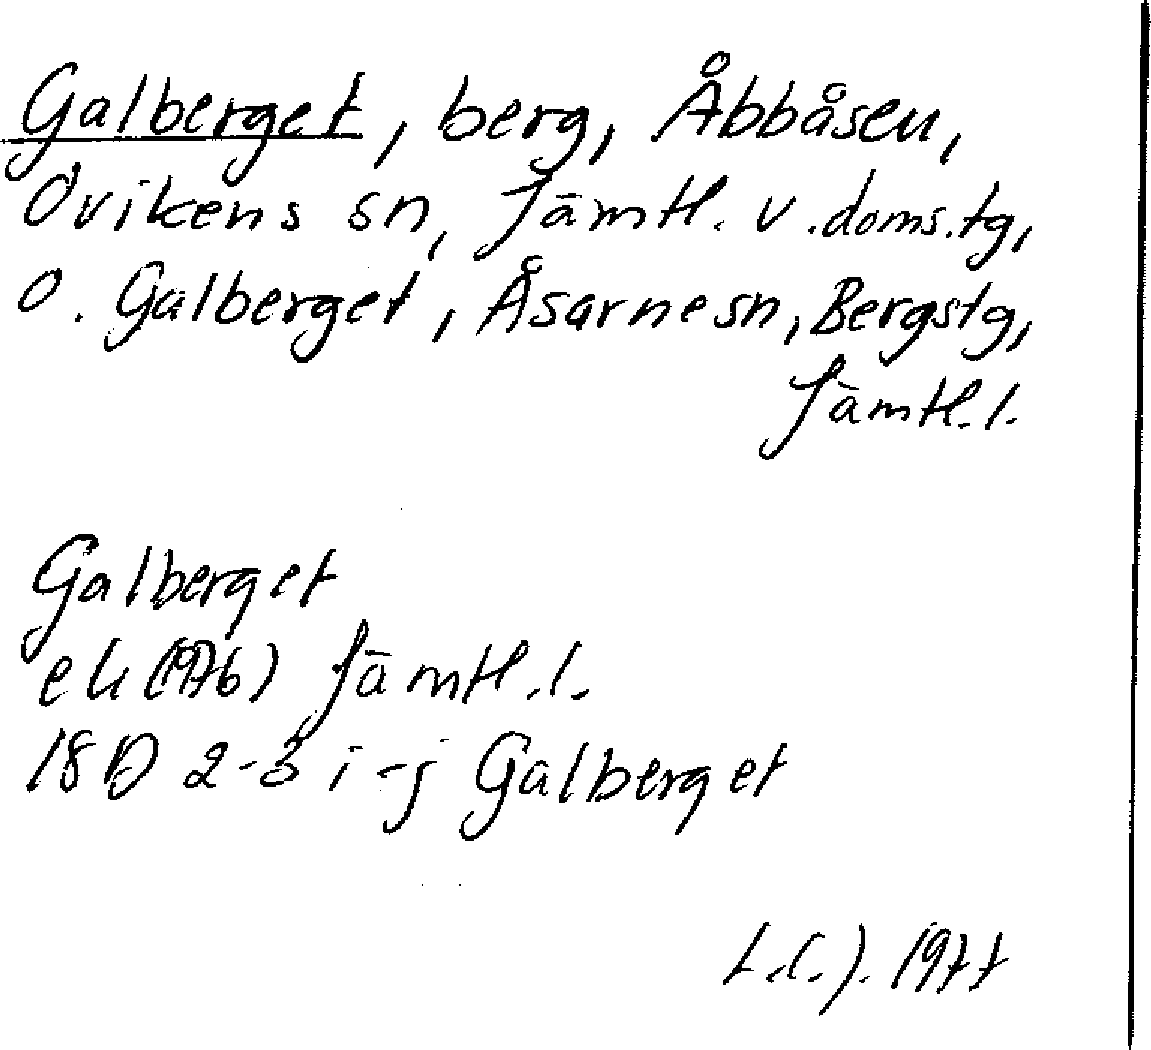 Galberget, berg, Åbbåsen,
Ovikens sn, Jämtl. v. doms. tg,
o. Galberget, Åsarne sn, Bergs tg,
Jämtl. l.
Galberget
ek (1976) Jämtl. l.
18D 2-3 i-j Galberget
L.C.J. 1977